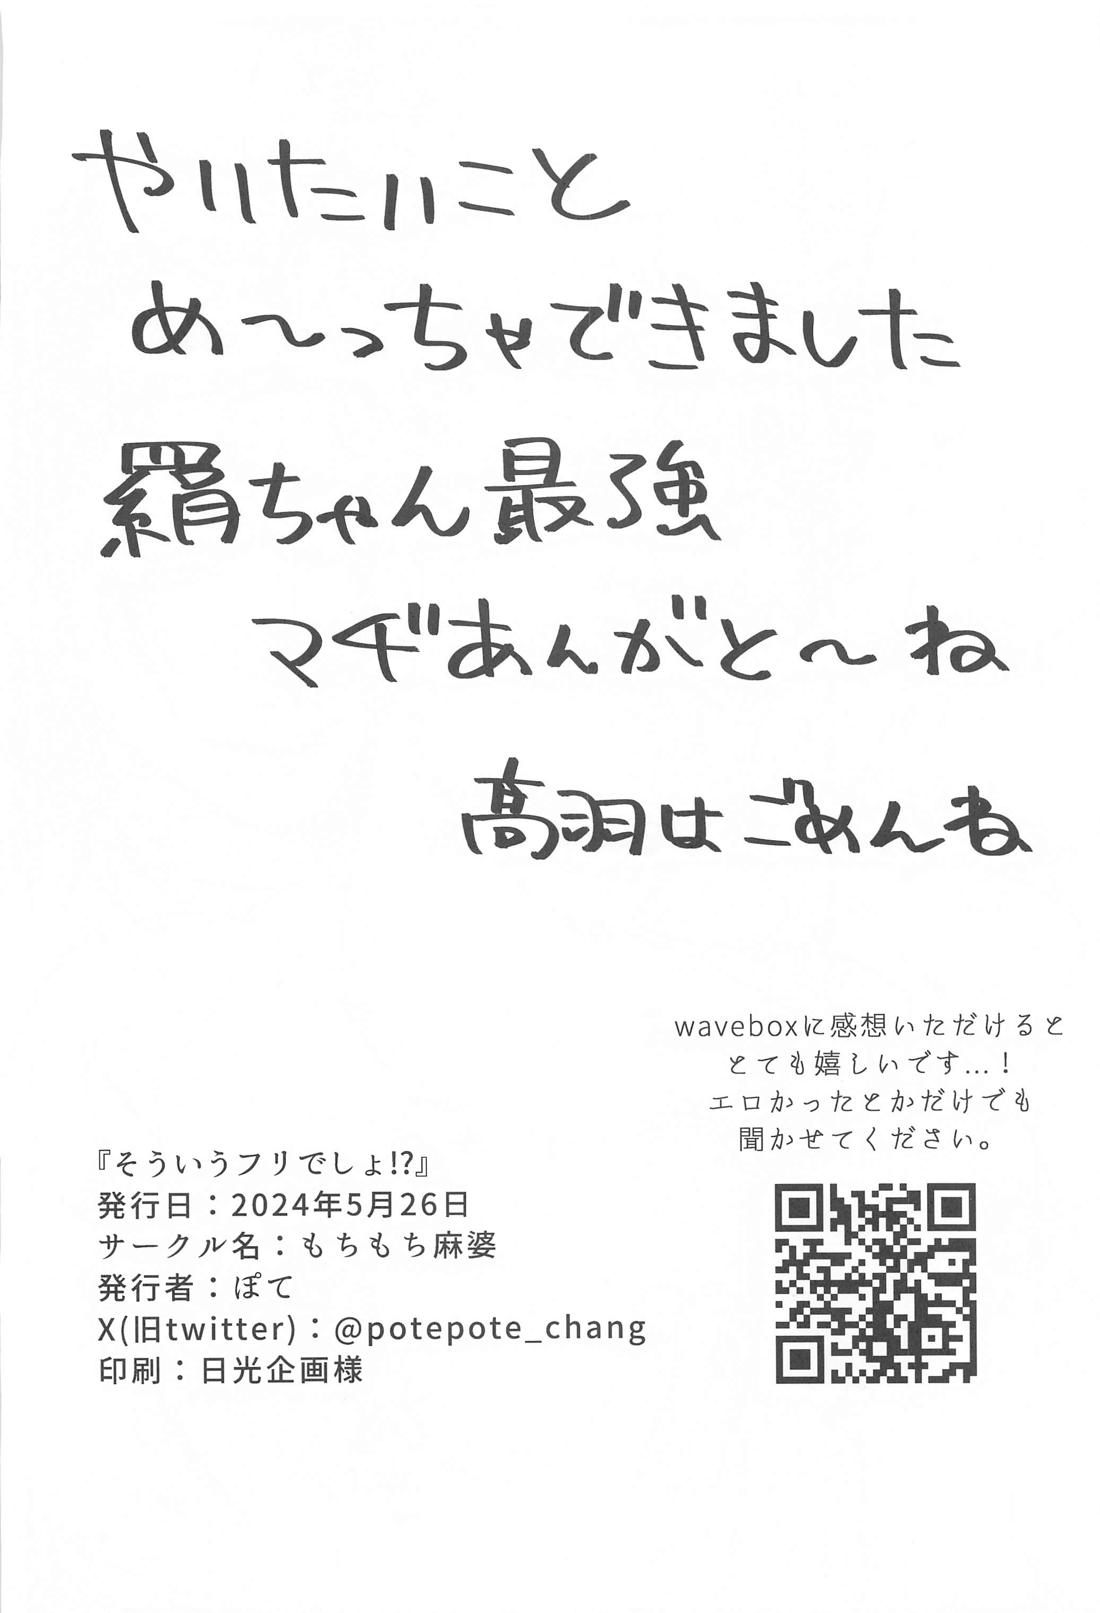 やりたいこと
め〜っちゃできました
羂ちゃん最強
マヂあんがと〜ね
髙羽はごめんね
waveboxに感想いただけると
とても嬉しいです…！
エロかったとかだけでも
聞かせてください。
『そういうフリでしょ!?』
発行日：2024年5月26日
サークル名：もちもち麻婆
発行者：ぽて
X(旧twitter)：@potepote_chang
印刷：日光企画様